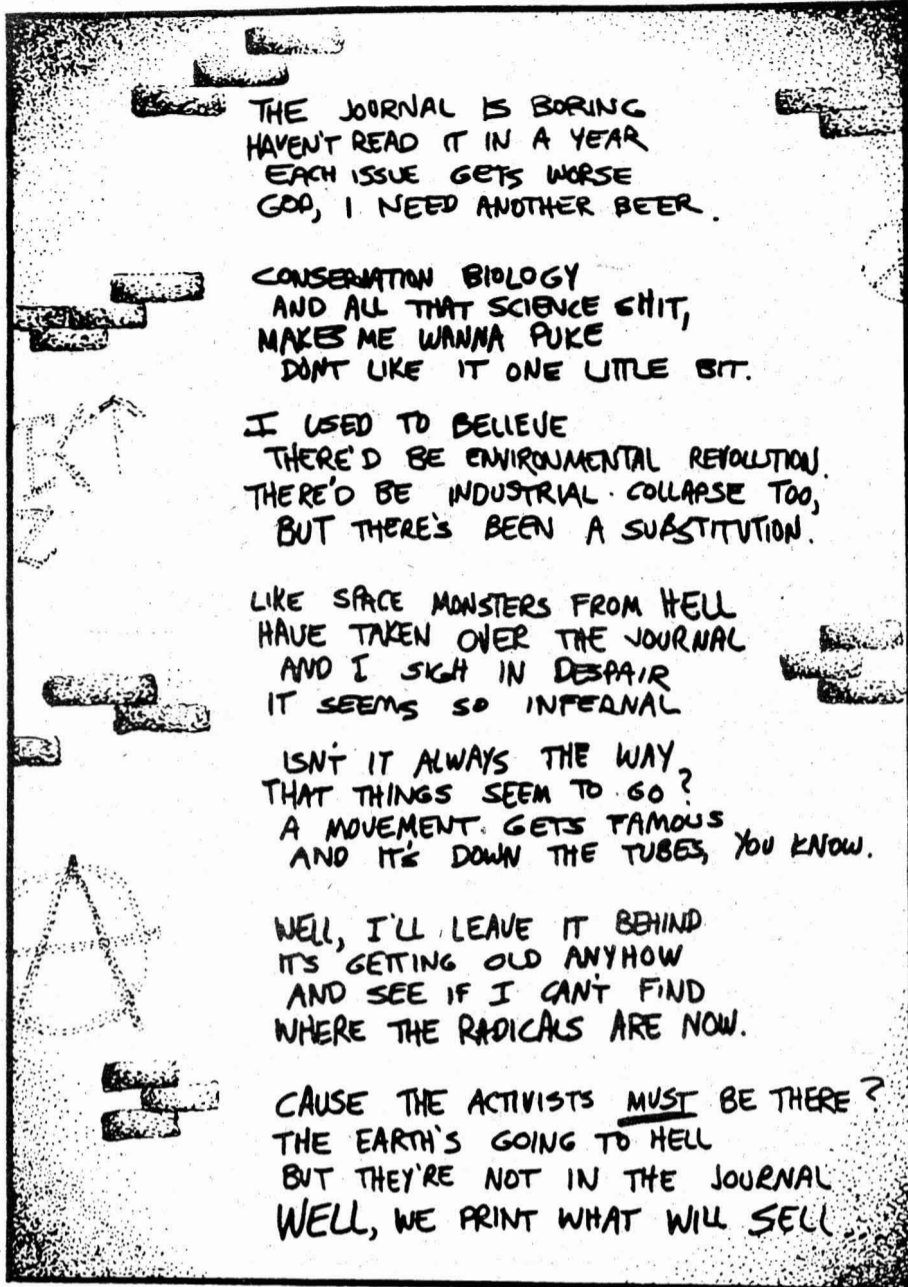 THE JOURNAL IS BORING
HAVEN'T READ IT IN A YEAR
EACH ISSUE GETS WORSE
GOD, I NEED ANOTHER BEER.
CONSERVATION BIOLOGY
AND ALL THAT SCIENCE SHIT,
MAKES ME WANNA PUKE
DON'T LIKE IT ONE LITTLE BIT.
I USED TO BELIEVE
THERE'D BE ENVIRONMENTAL REVOLUTION.
THERE'D BE INDUSTRIAL COLLAPSE TOO,
BUT THERE'S BEEN A SUBSTITUTION.
LIKE SPACE MONSTERS FROM HELL
HAVE TAKEN OVER THE JOURNAL
AND I SIGH IN DESPAIR
IT SEEMS SO INFERNAL
ISN'T IT ALWAYS THE WAY
THAT THINGS SEEM TO GO?
A MOVEMENT GETS FAMOUS
AND IT'S DOWN THE TUBES, YOU KNOW.
WELL, I'LL LEAVE IT BEHIND
IT'S GETTING OLD ANYHOW
AND SEE IF I CAN'T FIND
WHERE THE RADICALS ARE NOW.
CAUSE THE ACTIVISTS MUST BE THERE?
THE EARTH'S GOING TO HELL
BUT THEY'RE NOT IN THE JOURNAL
WELL, WE PRINT WHAT WILL SELL...